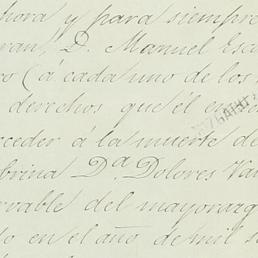 hora y para siempre
D. Manuel Esc
o (á cada uno de los
derechos que él en
ceder á la muerte de
brina D.ª Dolores Va
rvable del mayorazg
o en el año de mil s